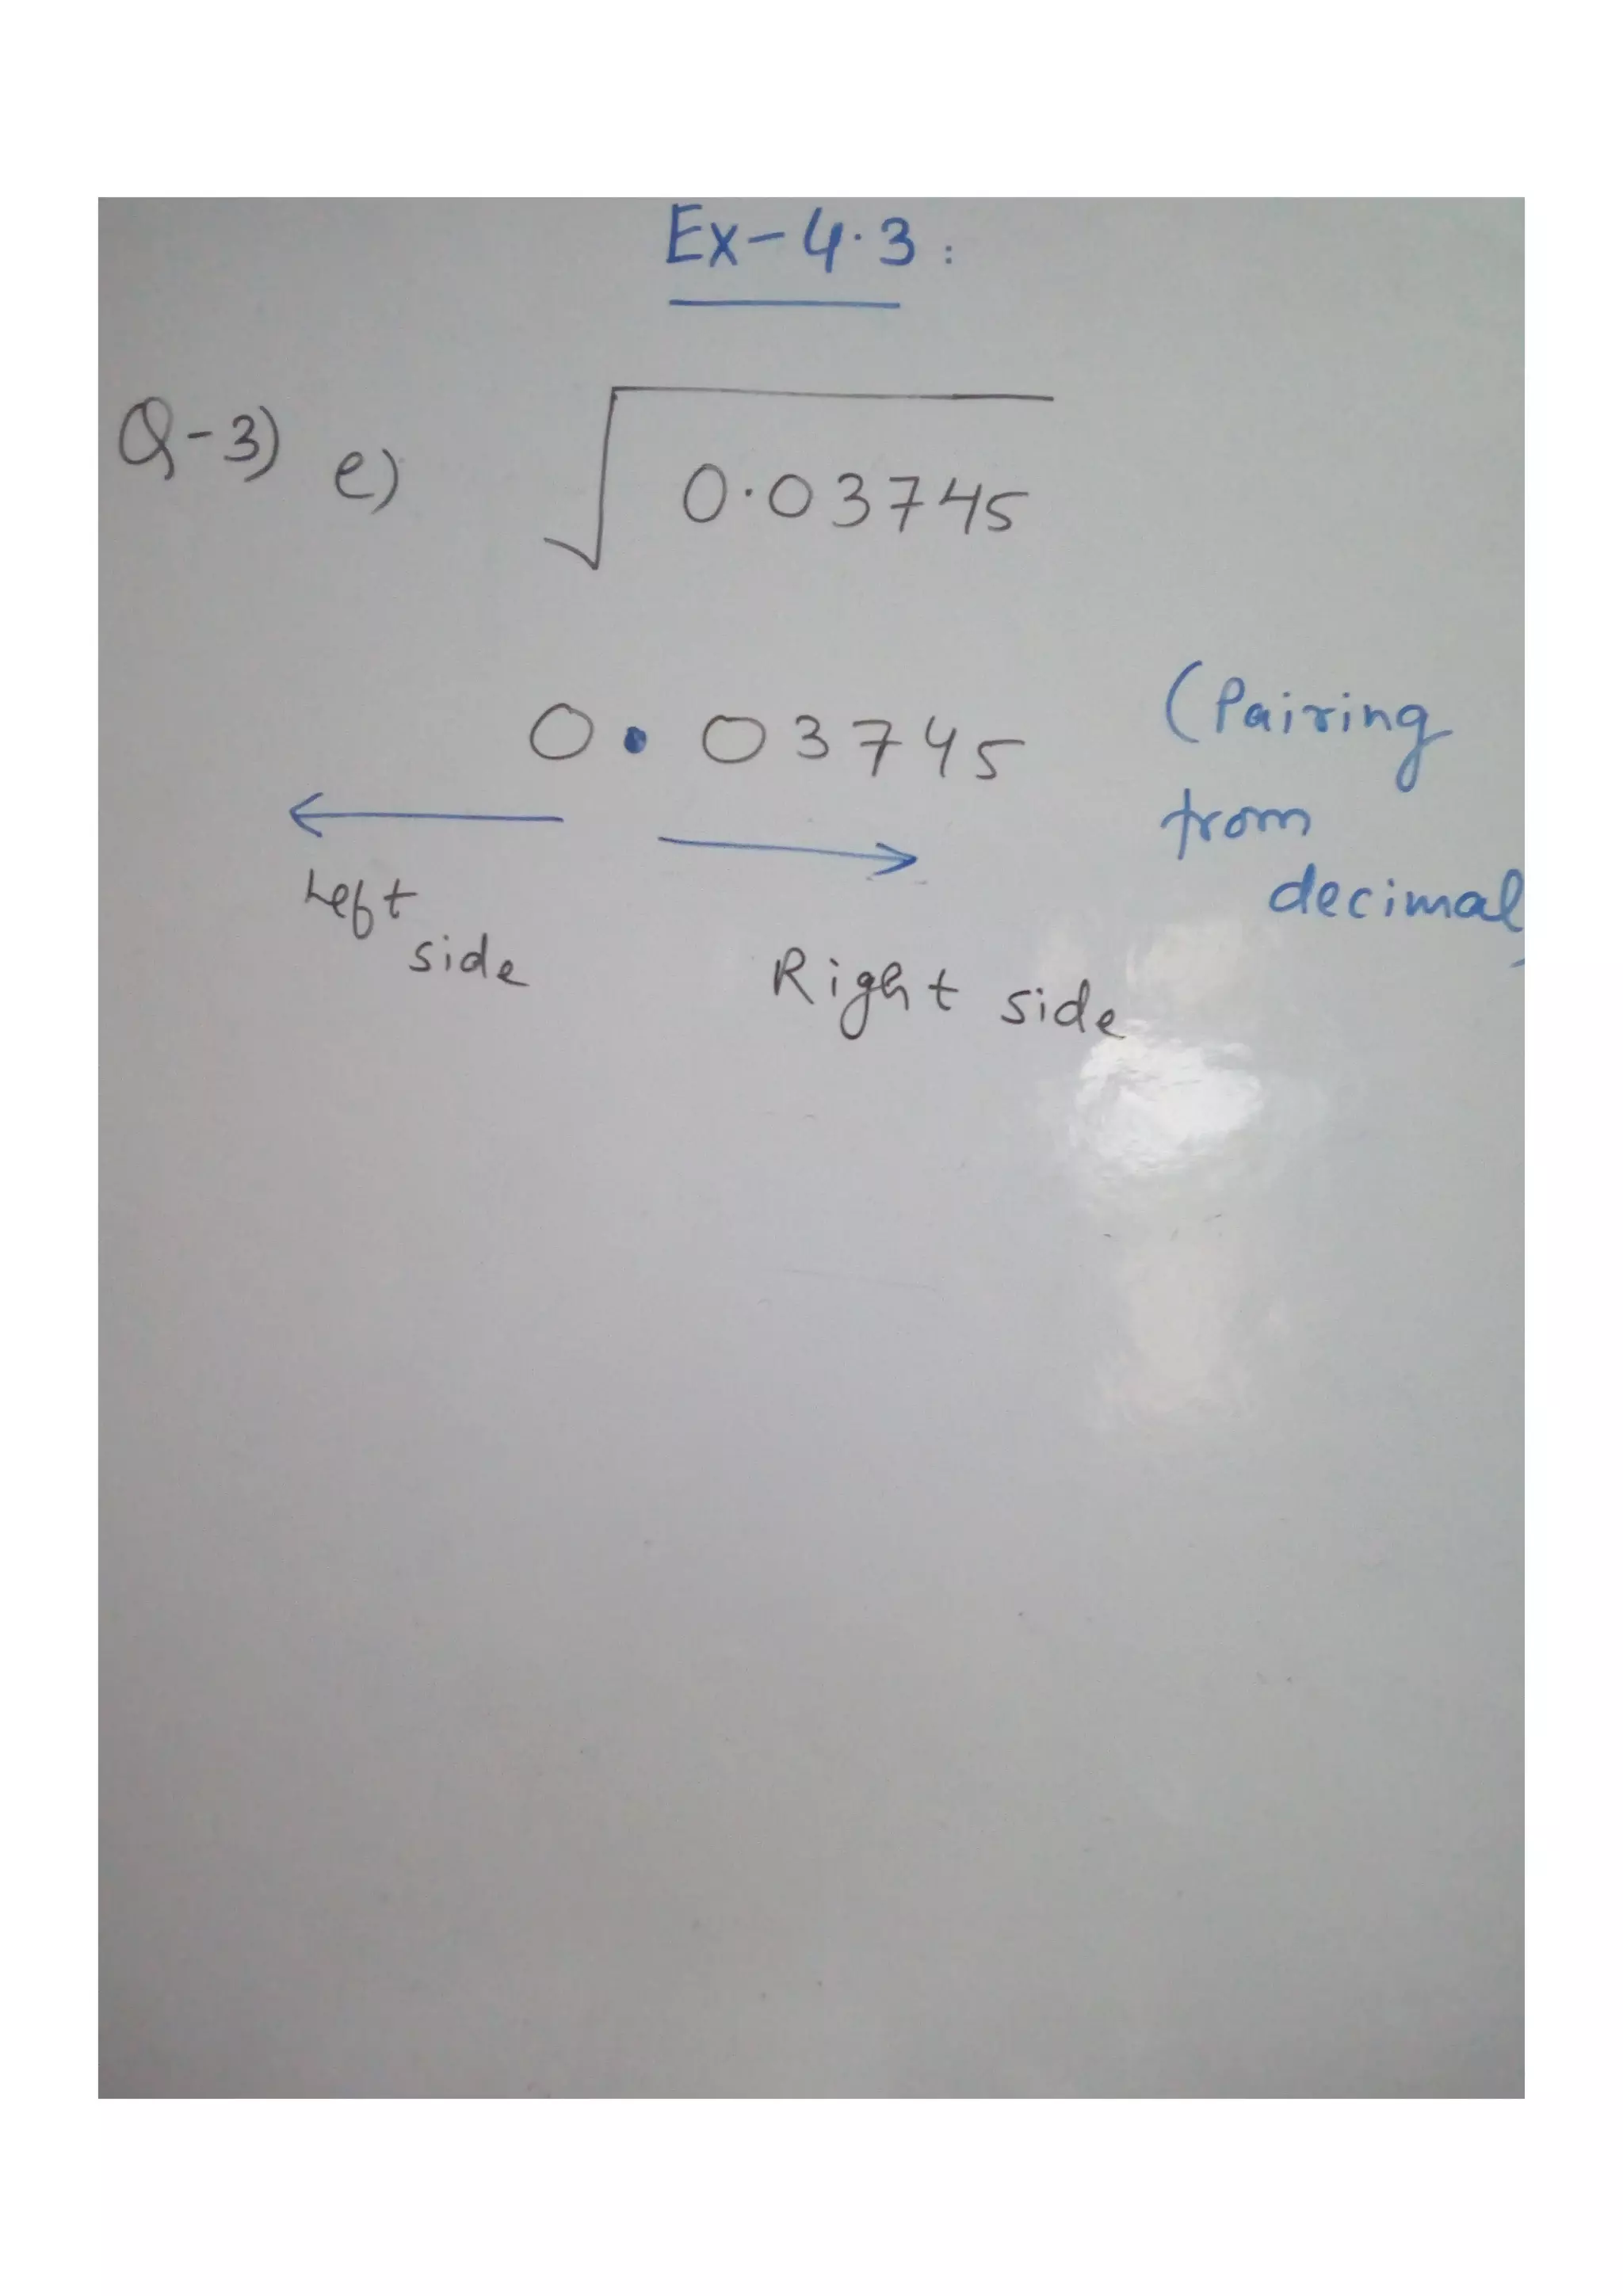 Ex-4.3:
Q-3) e) √0.03745
0.03745
(Pairing
from
decimal)
Left
side
Right side